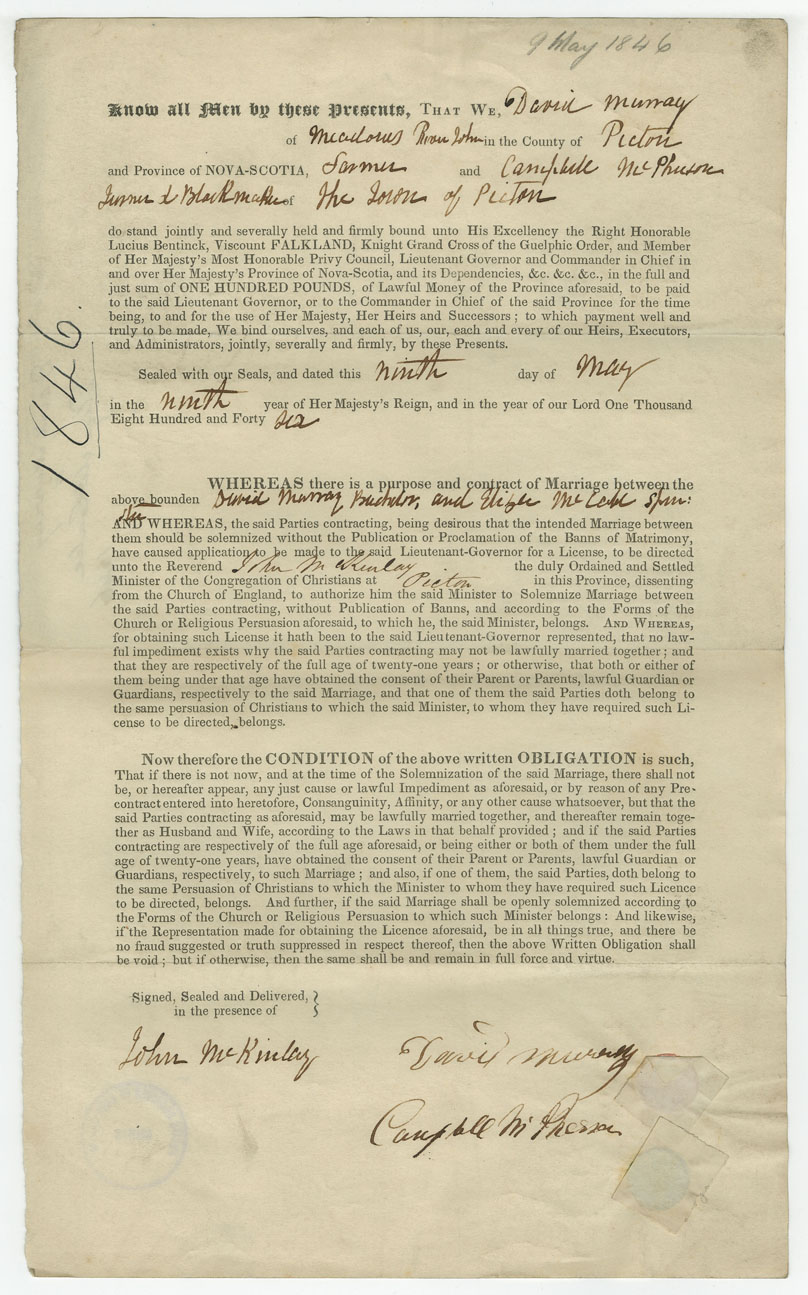 9 May 1846
Know all Men by these Presents, THAT WE, David Murray
of Meadows River John in the County of Picton
and Province of NOVA-SCOTIA, Farmer and Campbell McPherson
Turner & Blockmaker of the Town of Picton
do stand jointly and severally held and firmly bound unto His Excellency the Right Honorable
Lucius Bentinck, Viscount FALKLAND, Knight Grand Cross of the Guelphic Order, and Member
of Her Majesty's Most Honorable Privy Council, Lieutenant Governor and Commander in Chief in
and over Her Majesty's Province of Nova-Scotia, and its Dependencies, &c. &c. &c., in the full and
just sum of ONE HUNDRED POUNDS, of Lawful Money of the Province aforesaid, to be paid
to the said Lieutenant Governor, or to the Commander in Chief of the said Province for the time
being, to and for the use of Her Majesty, Her Heirs and Successors ; to which payment well and
truly to be made, We bind ourselves, and each of us, our, each and every of our Heirs, Executors,
and Administrators, jointly, severally and firmly, by these Presents.
1846.
Sealed with our Seals, and dated this ninth day of May
in the ninth year of Her Majesty's Reign, and in the year of our Lord One Thousand
Eight Hundred and Forty six
WHEREAS there is a purpose and contract of Marriage between the
above bounden David Murray Bachelor, and McCabe Spin:
ster
AND WHEREAS, the said Parties contracting, being desirous that the intended Marriage between
them should be solemnized without the Publication or Proclamation of the Banns of Matrimony,
have caused application to be made to the said Lieutenant-Governor for a License, to be directed
unto the Reverend John McKinlay the duly Ordained and Settled
Minister of the Congregation of Christians at Picton in this Province, dissenting
from the Church of England, to authorize him the said Minister to Solemnize Marriage between
the said Parties contracting, without Publication of Banns, and according to the Forms of the
Church or Religious Persuasion aforesaid, to which he, the said Minister, belongs. AND WHEREAS,
for obtaining such License it hath been to the said Lieutenant-Governor represented, that no law-
ful impediment exists why the said Parties contracting may not be lawfully married together ; and
that they are respectively of the full age of twenty-one years ; or otherwise, that both or either of
them being under that age have obtained the consent of their Parent or Parents, lawful Guardian or
Guardians, respectively to the said Marriage, and that one of them the said Parties doth belong to
the same persuasion of Christians to which the said Minister, to whom they have required such Li-
cense to be directed, belongs.
Now therefore the CONDITION of the above written OBLIGATION is such,
That if there is not now, and at the time of the Solemnization of the said Marriage, there shall not
be, or hereafter appear, any just cause or lawful Impediment as aforesaid, or by reason of any Pre-
contract entered into heretofore, Consanguinity, Affinity, or any other cause whatsoever, but that the
said Parties contracting as aforesaid, may be lawfully married together, and thereafter remain toge-
ther as Husband and Wife, according to the Laws in that behalf provided ; and if the said Parties
contracting are respectively of the full age aforesaid, or being either or both of them under the full
age of twenty-one years, have obtained the consent of their Parent or Parents, lawful Guardian or
Guardians, respectively, to such Marriage ; and also, if one of them, the said Parties, doth belong to
the same Persuasion of Christians to which the Minister to whom they have required such Licence
to be directed, belongs. And further, if the said Marriage shall be openly solemnized according to
the Forms of the Church or Religious Persuasion to which such Minister belongs : And likewise,
if the Representation made for obtaining the Licence aforesaid, be in all things true, and there be
no fraud suggested or truth suppressed in respect thereof, then the above Written Obligation shall
be void ; but if otherwise, then the same shall be and remain in full force and virtue.
Signed, Sealed and Delivered,
in the presence of
John McKinlay David Murray
Campbell McPherson